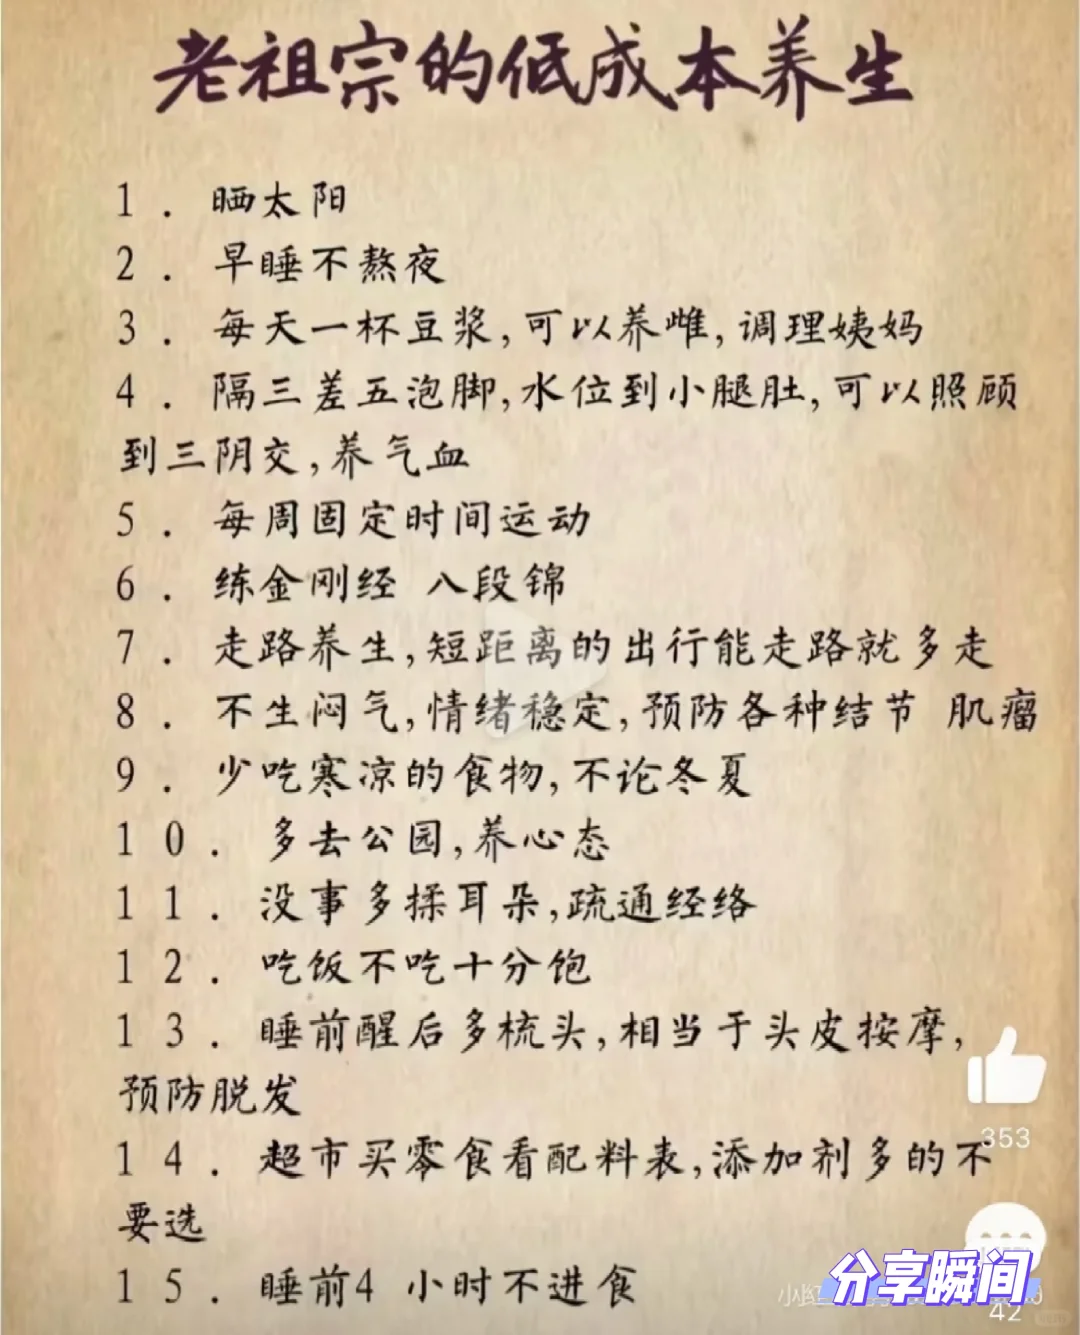 老祖宗的低成本养生
1．晒太阳
2．早睡不熬夜
3．每天一杯豆浆,可以养雌,调理姨妈
4．隔三差五泡脚,水位到小腿肚,可以照顾
到三阴交,养气血
5．每周固定时间运动
6．练金刚经 八段锦
7．走路养生,短距离的出行能走路就多走
8．不生闷气,情绪稳定,预防各种结节 肌瘤
9．少吃寒凉的食物,不论冬夏
10．多去公园,养心态
11．没事多揉耳朵,疏通经络
12．吃饭不吃十分饱
13．睡前醒后多梳头,相当于头皮按摩,
预防脱发
353
14．超市买零食看配料表,添加剂多的不
要选
15．睡前4 小时不进食
分享瞬间
42